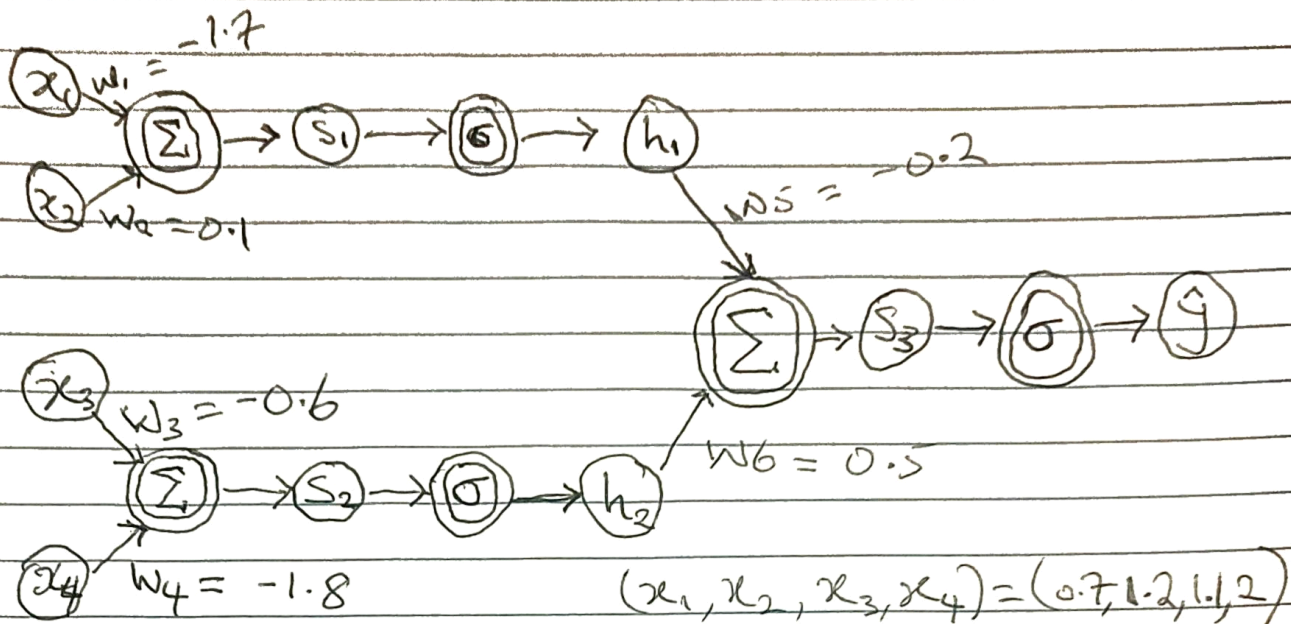 x₁ w₁ = -1.7
Σ → S₁ → σ → h₁
x₂ w₂ = 0.1
w5 = -0.2
Σ → S₃ → σ → ŷ
x₃ w₃ = -0.6
Σ → S₂ → σ → h₂
w6 = 0.5
x₄ w₄ = -1.8
(x₁, x₂, x₃, x₄) = (0.7, 1.2, 1.1, 2)